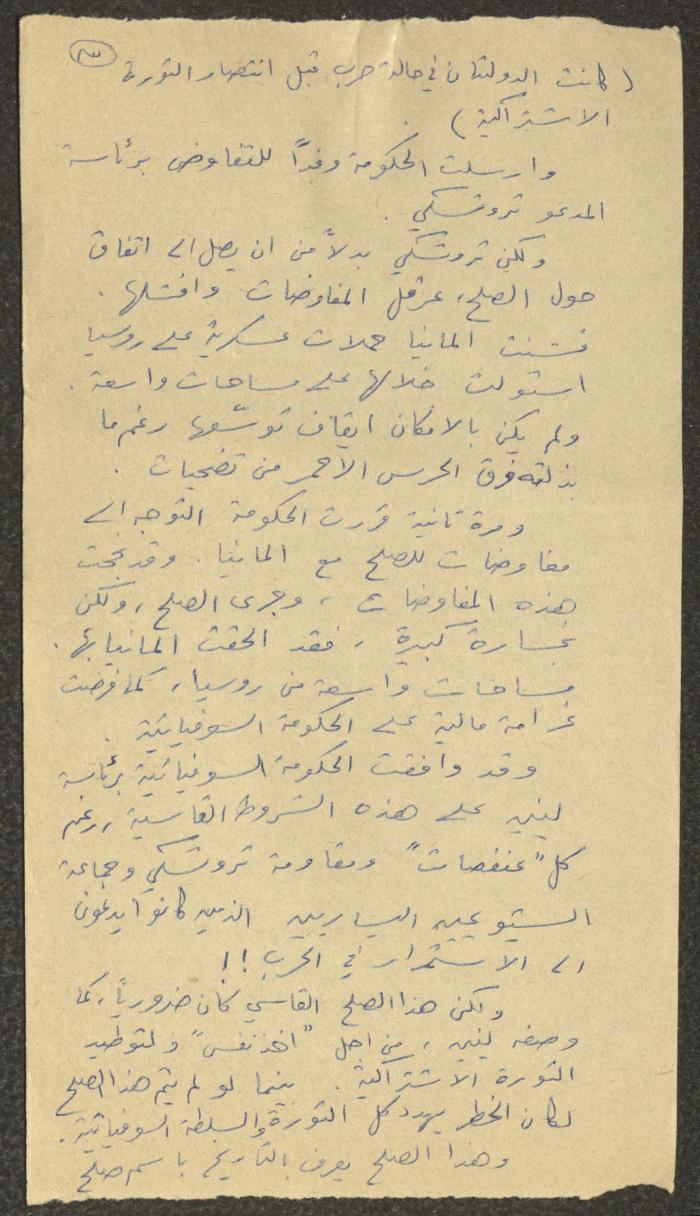 ٣
(كانت الدولتان في حالة حرب قبل انتصار الثورة
الاشتراكية) .
وارسلت الحكومة وفداً للتفاوض برئاسة
المدعو تروتسكي .
ولكن تروتسكي بدلاً من ان يصل الى اتفاق
حول الصلح، عرقل المفاوضات وافشلها .
فشنت المانيا حملات عسكرية على روسيا
استولت خلالها على مساحات واسعة .
ولم يكن بالامكان ايقاف توسّعها رغم ما
بذلته فرق الحرس الأحمر من تضحيات .
ومرة ثانية قررت الحكومة التوجه الى
مفاوضات للصلح مع المانيا . وقد نجحت
هذه المفاوضات ، وجرى الصلح ، ولكن
بخسارة كبيرة ، فقد الحقت المانيا بها .
مساحات واسعة من روسيا ، كما فرضت
غرامة مالية على الحكومة السوفياتية .
وقد وافقت الحكومة السوفياتية برئاسة
لينين على هذه الشروط القاسية ، رغم
كل "عنفصات" ومقاومة تروتسكي وجماعة
الشيوعيين اليساريين الذين كانوا يدعون
الى الاستمرار في الحرب !!
ولكن هذا الصلح القاسي كان ضرورياً ، كما
وصفه لينين ، من اجل "اخذ نفس" ولتوطيد
الثورة الاشتراكية . بينما لو لم يتم هذا الصلح
لكان الخطر يهدد كل الثورة والسلطة السوفياتية .
وهذا الصلح يعرف بالتاريخ باسم صلح